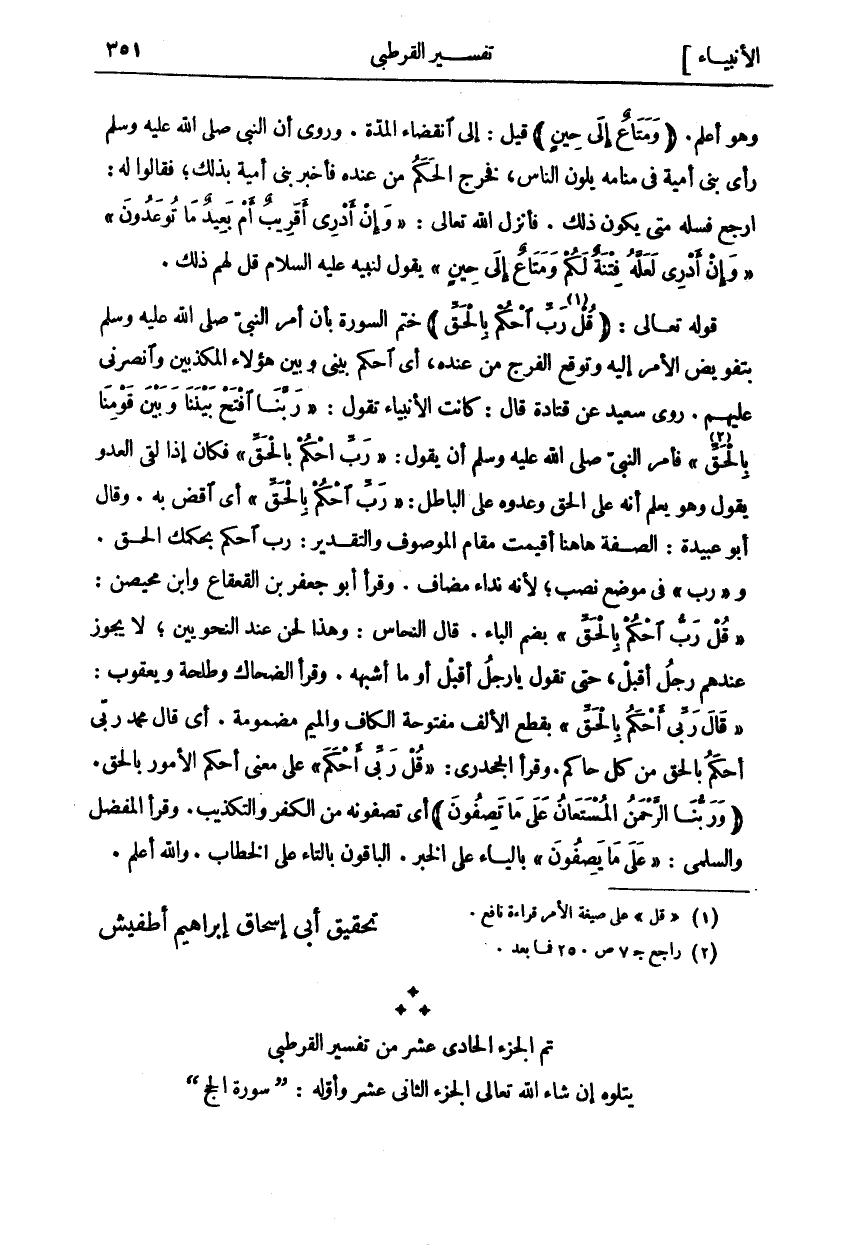 الأنبياء ]
تفسير القرطبى
٣٥١
وهو أعلم. ﴿وَمَتَاعٌ إِلَى حِينٍ﴾ قيل : إلى ٱنقضاء المدّة . وروى أن النبى صلى الله عليه وسلم
رأى بنى أمية فى منامه يلون الناس، فخرج الحَكَمُ من عنده فأخبر بنى أمية بذلك؛ فقالوا له :
ارجع فسله متى يكون ذلك . فأنزل الله تعالى : « وَإِنْ أَدْرِى أَقَرِيبٌ أَم بَعِيدٌ مَا تُوعَدُونَ »
« وَإِنْ أَدْرِى لَعَلَّهُ فِتْنَةٌ لَكُمْ وَمَتَاعٌ إِلَى حِينٍ » يقول لنبيه عليه السلام قل لهم ذلك .
قوله تعالى : ﴿ قُلْ رَبِّ ٱحْكُمْ بِالْحَقِّ ﴾ (١) ختم السورة بأن أمر النبىّ صلى الله عليه وسلم
بتفويض الأمر إليه وتوقع الفرج من عنده، أى ٱحكم بينى وبين هؤلاء المكذبين وٱنصرنى
عليهم . روى سعيد عن قتادة قال : كانت الأنبياء تقول : « رَبَّنَا ٱفْتَحْ بَيْنَنَا وَبَيْنَ قَوْمِنَا
بِالْحَقِّ (٢) » فأمر النبىّ صلى الله عليه وسلم أن يقول: « رَبِّ احْكُمْ بالْحَقِّ» فكان إذا لقى العدو
يقول وهو يعلم أنه على الحق وعدوه على الباطل: « رَبِّ ٱحْكُمْ بِالْحَقِّ » أى ٱقض به . وقال
أبو عبيدة : الصفة هاهنا أقيمت مقام الموصوف والتقدير : رب ٱحكم بحكمك الحق .
و « رب » فى موضع نصب؛ لأنه نداء مضاف . وقرأ أبو جعفر بن القعقاع وابن محيصن :
« قُلْ رَبُّ ٱحْكُمْ بِالْحَقِّ » بضم الباء . قال النحاس : وهذا لحن عند النحويين ؛ لا يجوز
عندهم رجلُ أقبلْ، حتى تقول يارجلُ أقبلْ أو ما أشبهه . وقرأ الضحاك وطلحة ويعقوب :
« قَالَ رَبِّى أَحْكَمُ بِالْحَقِّ » بقطع الألف مفتوحة الكاف والميم مضمومة . أى قال محمد ربّى
أحكَمُ بالحق من كل حاكم. وقرأ الجحدرى: «قُلْ رَبِّى أَحْكَمَ» على معنى أحكم الأمور بالحق.
﴿ وَرَبُّنَا الرَّحْمَنُ الْمُسْتَعَانُ عَلَى مَا تَصِفُونَ ﴾ أى تصفونه من الكفر والتكذيب. وقرأ المفضل
والسلمى : « عَلَى مَا يَصِفُونَ » بالياء على الخبر. الباقون بالتاء على الخطاب . والله أعلم .
(١) « قل » على صيغة الأمر قراءة نافع .
(٢) راجع جـ ٧ ص ٢٥٠ فما بعد .
تحقيق أبى إسحاق إبراهيم أطفيش
تم الجزء الحادى عشر من تفسير القرطبى
يتلوه إن شاء الله تعالى الجزء الثانى عشر وأوّله : ” سورة الحج “